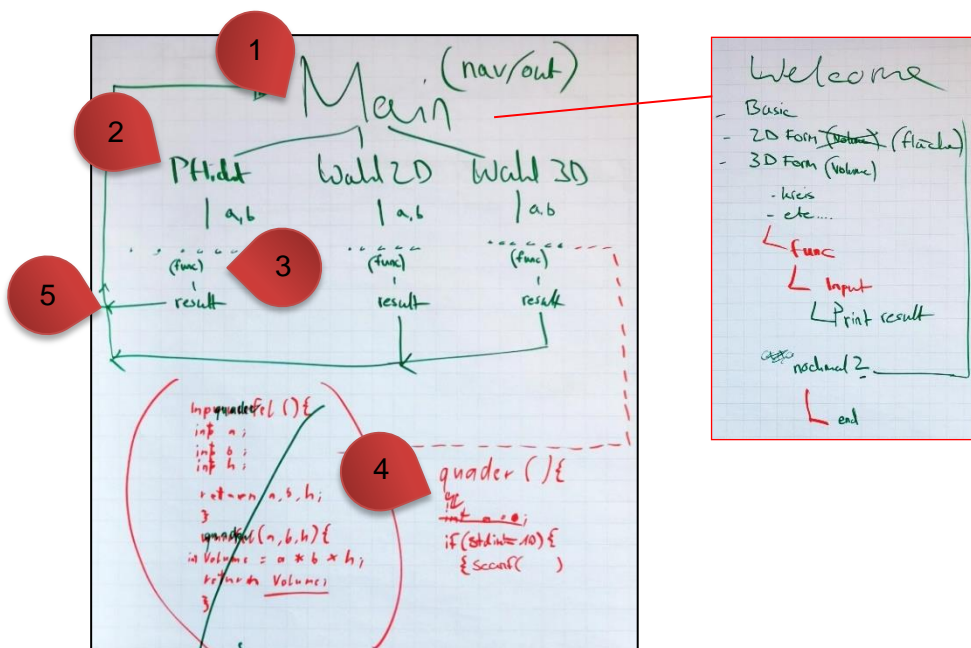 1
Main (nav/out)
2
Pflicht Wahl 2D Wahl 3D
a,b a,b a,b
3
(func) (func) (func)
5
result result result
int a;
int b;
int h;
return a,b,h;
}
(a,b,h){
Volume = a * b * h;
return Volume;
}
4
quader (){
int a = 0;
if(stdin=10){
{scanf( )
Welcome
- Basic
- 2D Form (Volume) (fläche)
- 3D Form (Volume)
- kreis
- etc....
func
Input
Print result
nochmal ?
end